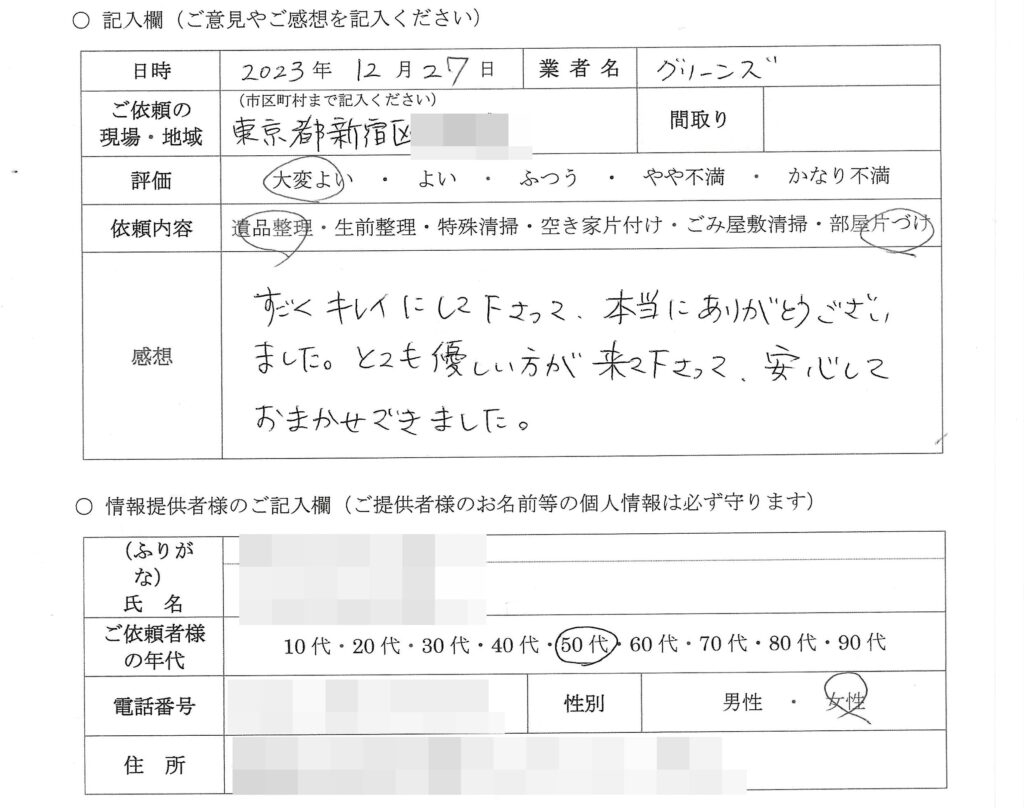 ○ 記入欄（ご意見やご感想を記入ください）
日時 2023年 12月27日 業者名 グリーンズ
ご依頼の現場・地域 （市区町村まで記入ください） 東京都新宿区 間取り
評価 大変よい ・ よい ・ ふつう ・ やや不満 ・ かなり不満
依頼内容 遺品整理・生前整理・特殊清掃・空き家片付け・ごみ屋敷清掃・部屋片づけ
感想
すごくキレイにして下さって、本当にありがとうござい
ました。とても優しい方が来て下さって、安心して
おまかせできました。
○ 情報提供者様のご記入欄（ご提供者様のお名前等の個人情報は必ず守ります）
（ふりが
な）
氏 名
ご依頼者様
の年代 10代・20代・30代・40代・50代・60代・70代・80代・90代
電話番号 性別 男性 ・ 女性
住 所